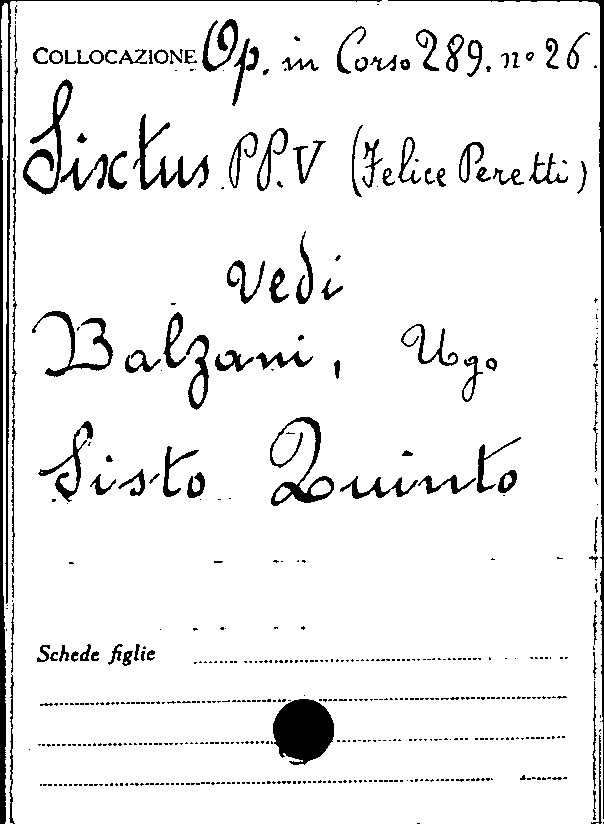 COLLOCAZIONE Op. in Corso 289. nº 26.
Sixtus PP.V (Felice Peretti)
vedi
Balzani, Ugo
Sisto Quinto
Schede figlie